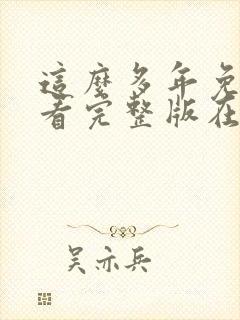 這麼多年免
看完整版在
吳亦兵